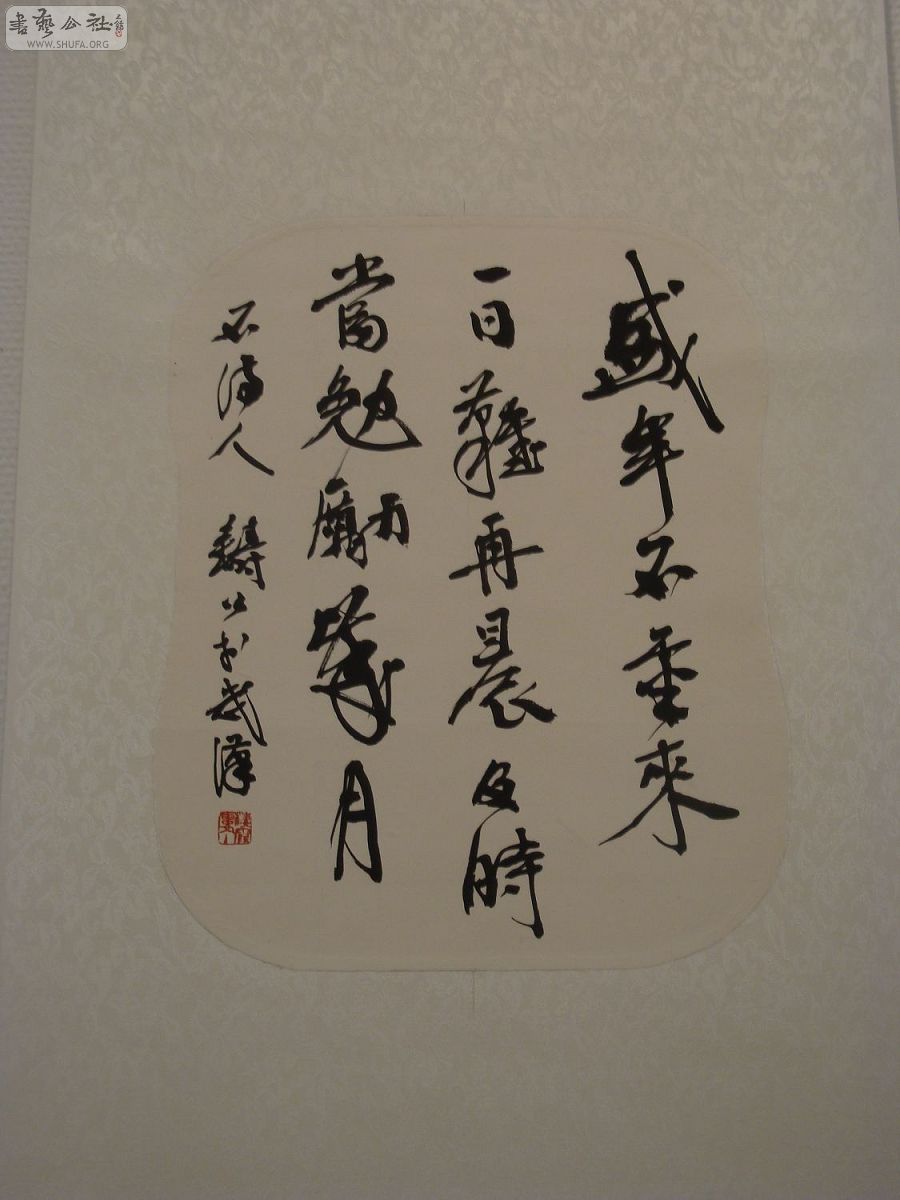 盛年不重来
一日難再晨及時
當勉勵歲月
不待人 濤公於武漢
書藝公社
WWW.SHUFA.ORG